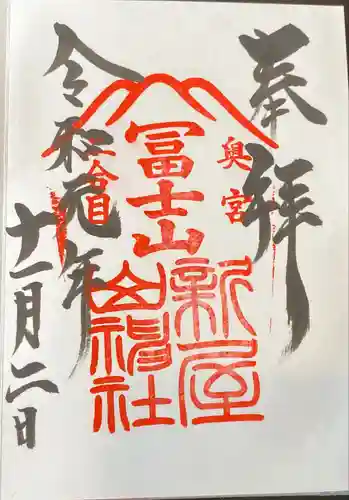 奉拝
奥宮
冨士山
二合目
新屋
山神社
令和元年
十一月二日